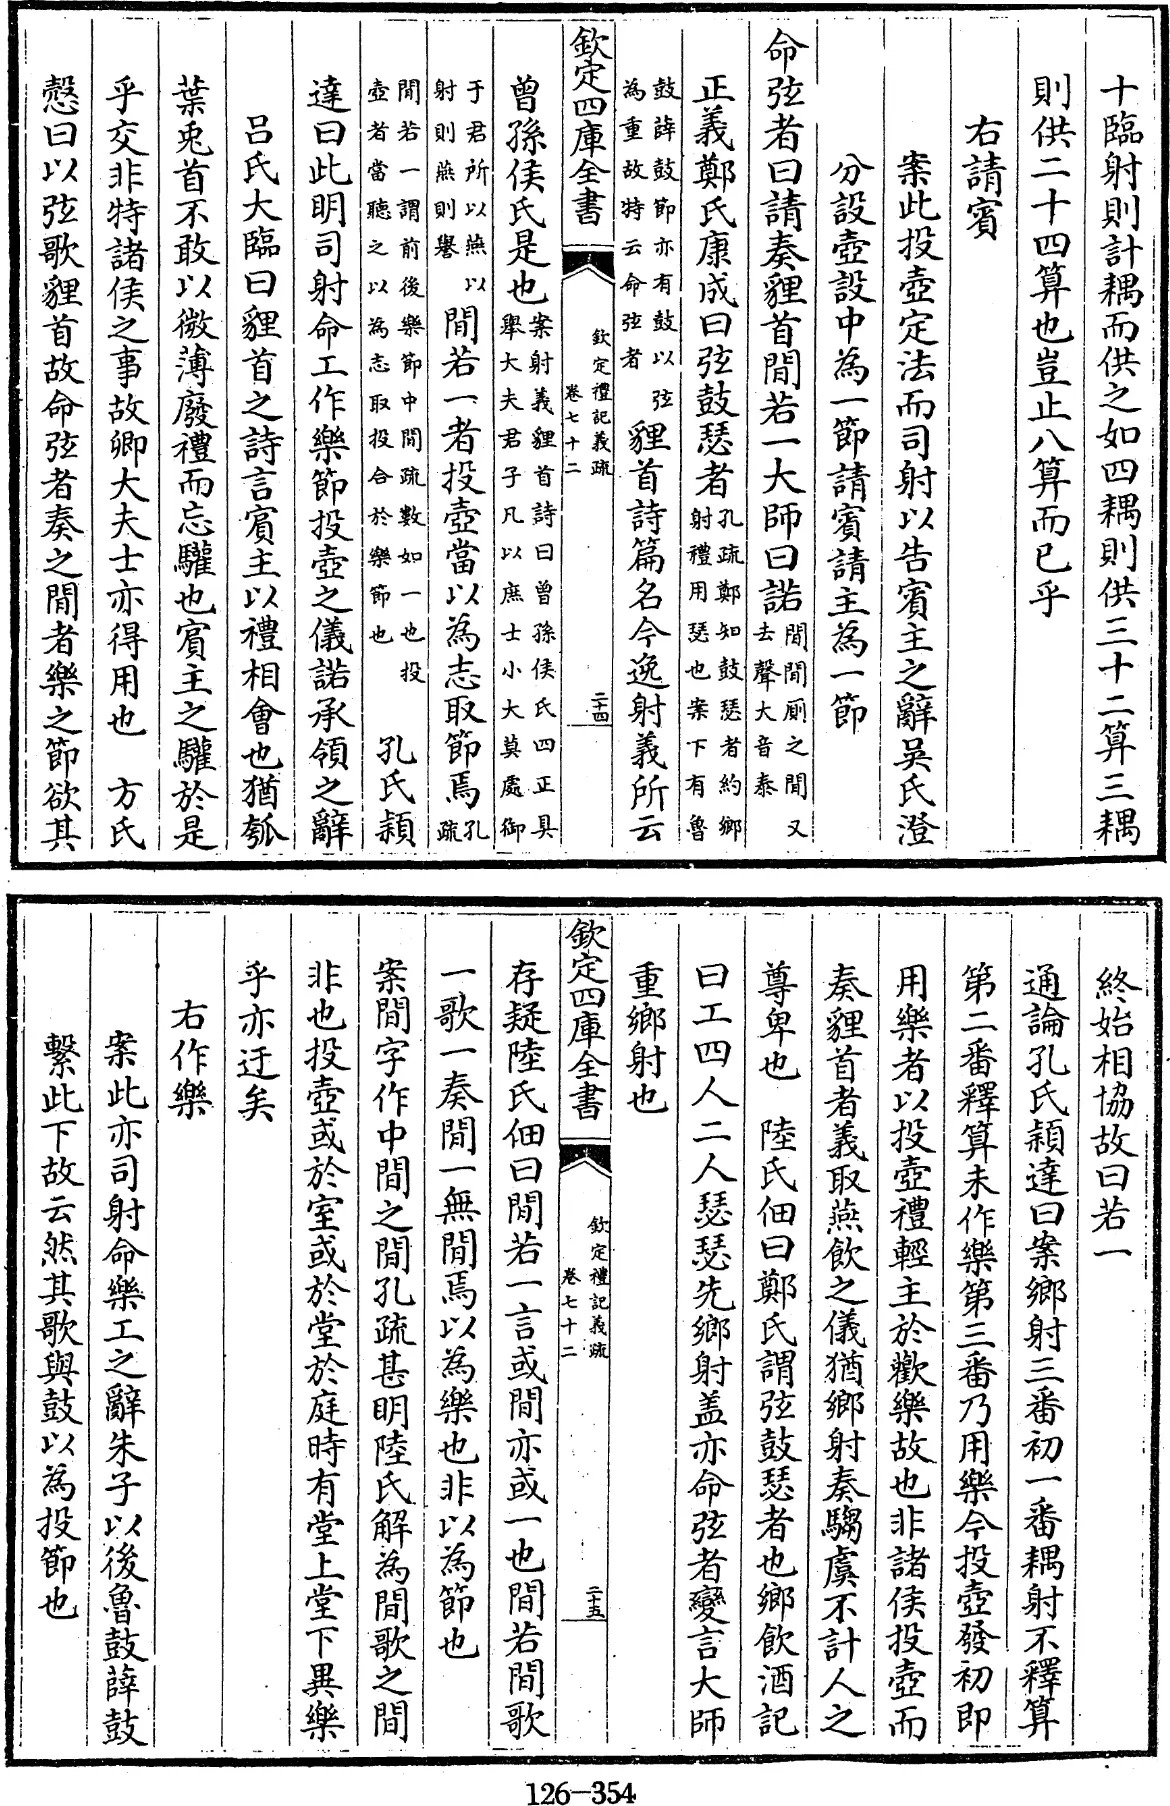 十臨射則計耦而供之如四耦則供三十二算三耦
則供二十四算也豈止八算而已乎
右請賓
案此投壺定法而司射以告賓主之辭吳氏澄
分設壺設中為一節請賓請主為一節
命弦者曰請奏貍首間若一大師曰諾間間厠之間又
去聲大音泰
正義鄭氏康成曰弦鼓瑟者孔疏鄭知鼓瑟者約鄉
射禮用瑟也案下有魯
鼓薛鼓節亦有鼓以弦
為重故特云命弦者
貍首詩篇名今逸射義所云
欽定四庫全書
欽定禮記義疏
卷七十二
二十四
曾孫侯氏是也案射義貍首詩曰曾孫侯氏四正具
舉大夫君子凡以庶士小大莫處御
于君所以燕以
射則燕則譽
間若一者投壺當以為志取節焉孔
疏
間若一謂前後樂節中間疏數如一也投
壺者當聽之以為志取投合於樂節也
孔氏穎
達曰此明司射命工作樂節投壺之儀諾承領之辭
呂氏大臨曰貍首之詩言賓主以禮相會也猶瓠
葉兎首不敢以微薄廢禮而忘驩也賓主之驩於是
乎交非特諸侯之事故卿大夫士亦得用也 方氏
慤曰以弦歌貍首故命弦者奏之間者樂之節欲其
終始相協故曰若一
通論孔氏穎達曰案鄉射三番初一番耦射不釋算
第二番釋算未作樂第三番乃用樂今投壺發初即
用樂者以投壺禮輕主於歡樂故也非諸侯投壺而
奏貍首者義取燕飲之儀猶鄉射奏騶虞不計人之
尊卑也 陸氏佃曰鄭氏謂弦鼓瑟者也鄉飲酒記
曰工四人二人瑟瑟先鄉射盖亦命弦者變言大師
重鄉射也
欽定四庫全書
欽定禮記義疏
卷七十二
二十五
存疑陸氏佃曰間若一言或間亦或一也間若間歌
一歌一奏間一無間焉以為樂也非以為節也
案間字作中間之間孔疏甚明陸氏解為間歌之間
非也投壺或於室或於堂於庭時有堂上堂下異樂
乎亦迂矣
右作樂
案此亦司射命樂工之辭朱子以後魯鼓薛鼓
繫此下故云然其歌與鼓以為投節也
126-354